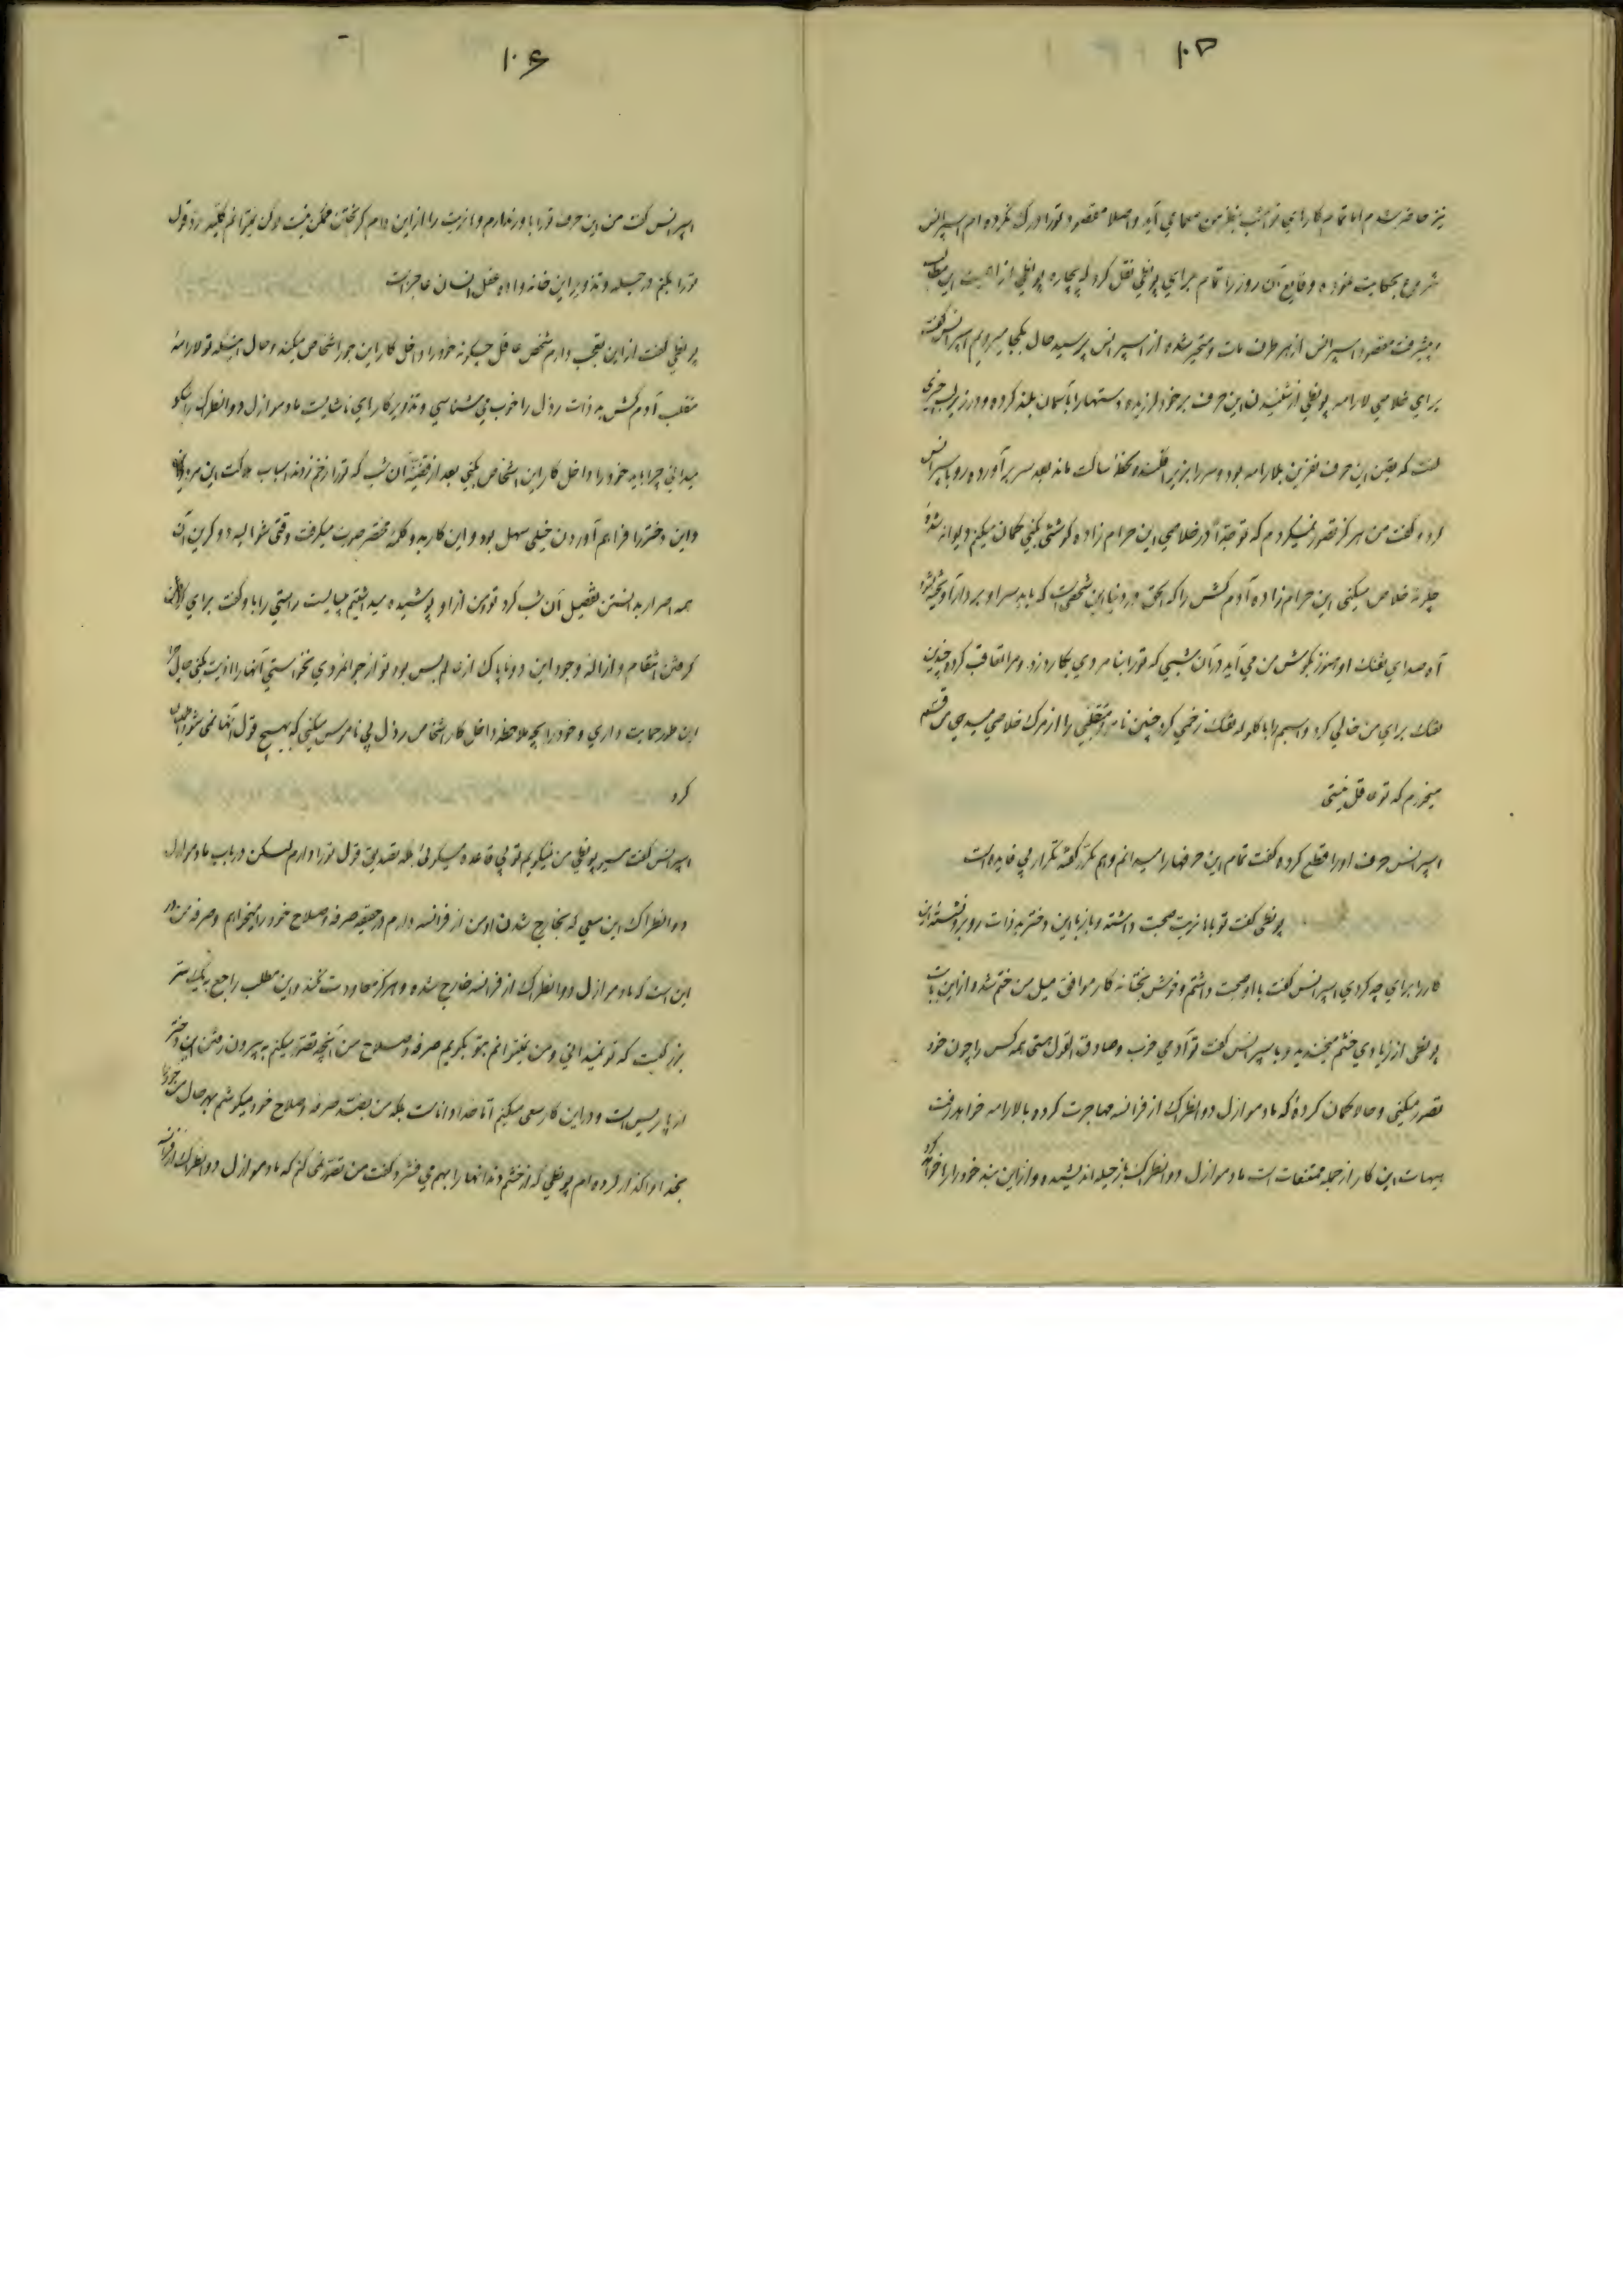 ۱۰۵
نیز حاضر شدم اما تمام کارهای تو امشب بنظر من معمای آید و اصلا مقصود تو را درک نکرده ام اسپرانس
شروع بحکایت نموده وقایع آن روز را تمام برای پونظی نقل کرد که بیچاره پونظی از اهمیت این مطالب
و پیشرفت مقصود اسپرانس از هر طرف مات و متحیر شده از اسپرانس پرسید حال بکجا میرویم اسپرانس گفت
برای خلاصی لارامه پونظی از شنیدن این حرف بر خود لرزیده دستها را بآسمان بلند کرده و در زیر لب چیزی
گفت که یقین این حرف نفرین بلارامه بود و سر را بزیر افکنده لحظهٔ ساکت ماند بعد سر برآورده رو باسپرانس
کرده گفت من هرگز تصور نمیکردم که تو جداً در خلاصی این حرام زاده کوشش بکنی گمان میکنم دیوانه شدهٔ
چگونه خلاص میکنی این حرام زاده آدم کش را که الحق در دنیا این شخصی است که باید سر او بر دار آویخته شود
آه صدای تفنگ او هنوز بگوش من می آید در آن شبی که تو را بنامردی بکارد زد و مرا تعاقب کرد و چندین
تفنگ برای من خالی کرد و اسبم را با گلوله تفنگ زخمی کرد چنین نامرد متقلبی را از مرگ خلاصی میدهی من قسم
میخورم که تو عاقل نیستی
اسپرانس حرف او را قطع کرده گفت تمام این حرفها را میدانم و هم مکرر گفته تکرار بی فایده است
پونظی گفت تو با انریت صحبت داشته و باز با این دختر بد ذات روبرو نشسته این
کار را برای چه کردی اسپرانس گفت با او صحبت داشتم و خوش بختانه کار موافق میل من ختم شد و از این بابت
پونظی از زیادی خشم میخندید و با سپرانس گفت تو آدمی خوب و صادق القول هستی همه کس را چون خود
تصور میکنی و حالا گمان کردهٔ که مادموازل دوانطراگ از فرانسه مهاجرت کرده و با لارامه خواهد رفت
هیهات این کار از جمله ممتنعات است مادموازل دوانطراگ باز حیله اندیشیده و از این بند خود را رها خواهد کرد
۱۰۶
اسپرانس گفت من این حرف تو را باور ندارم و انریت را از این دام گریختن ممکن نیست ولکن نمیتوانم بکلیه رد قول
تو را بکنم در حیله و تزویر این خانه واده عقل انسان عاجز است
پونظی گفت از این تعجب دارم شخص عاقل چگونه خود را داخل کار این جور اشخاص میکند و حال اینکه تو لارامه
متقلب آدم کش بد ذات رذل را خوب می شناسی و تزویر کارهای ناشایست مادموازل دوانطراگ را نیکو
میدانی چرا باید خود را داخل کار این اشخاص بکنی بعد از قضیهٔ آن شب که تو را زخم زدند اسباب هلاکت این مرد
و این دختر را فراهم آوردن خیلی سهل بود و این کار بدو کلمه مختصر صورت میگرفت وقتی شوالیه دوکرین آن
همه اصرار بدانستن تفصیل آن شب کرد تو من از او پوشیده میداشتیم میبایست راستی را با و گفت برای
گرفتن انتقام و ازاله وجود این دو ناپاک از عالم بس بود تو از جوانمردی نخواستی آنها را اذیت بکنی حال چرا
این طور حمایت داری و خود را بچه ملاحظه داخل کار اشخاص رذل بی ناموس میکنی که بهیچ قول آنها نمی شود اطمینان
کرد
اسپرانس گفت مسیو پونظی من نمیگویم تو بی قاعده میگوئی بلکه تصدیق قول تو را دارم لیکن در باب مادموازل
دوانطراگ این سعی که بخارج شدن او من از فرانسه دارم در حقیقت صرفه و صلاح خود را میخواهم و صرفه من در
این است که مادموازل دوانطراگ از فرانسه خارج شده و هرگز معاودت نکند و این مطلب راجع بیک سر
بزرگیست که تو نمیدانی و من نمیتوانم بتو بگویم صرفه و صلاح من آنچه تصور میکنم به بیرون رفتن این دختر
از پاریس است و در این کار سعی میکنم اما خدا داناست بلکه من بضد صرفه و صلاح خود میکوشم بهر حال من خود را
بخدا واگذار کرده ام پونظی که از خشم دندانها را بهم می فشرد گفت من تصور نمی کنم که مادموازل دوانطراگ از فرانسه